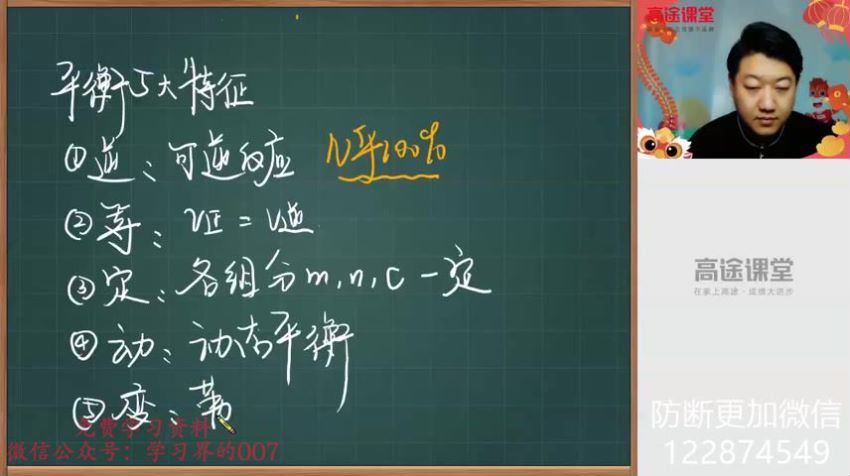 平衡5大特征
①逆：可逆反应 μ≠100%
②等：v正=v逆
③定：各组分m,n,c一定
④动：动态平衡
⑤变：勒
免费学习资料
微信公众号：学习界的007
高途课堂
高途课堂
在家上高途·成绩大进步
防断更加微信
122874549